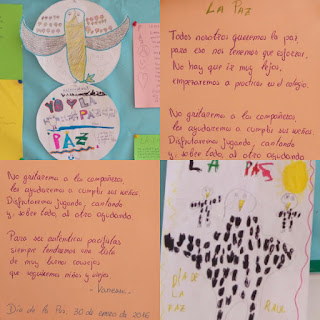 YO
LA
PAZ
LA PAZ
Todos nosotros queremos la paz
para eso nos tenemos que esforzar.
No hay que ir muy lejos,
empezaremos a practicar en el colegio.
No gritaremos a los compañeros,
les ayudaremos a cumplir sus sueños.
Disfrutaremos jugando, cantando
y, sobre todo, al otro ayudando.
No gritaremos a los compañeros,
les ayudaremos a cumplir sus sueños.
Disfrutaremos jugando, cantando
y, sobre todo, al otro ayudando.
Para ser auténticos pacifistas
siempre tendremos una lista
de muy buenos consejos
que seguiremos niños y viejos.
Día de la Paz 30 de enero de 2016
LA PAZ
DÍA DE
LA
PAZ
RAÚL